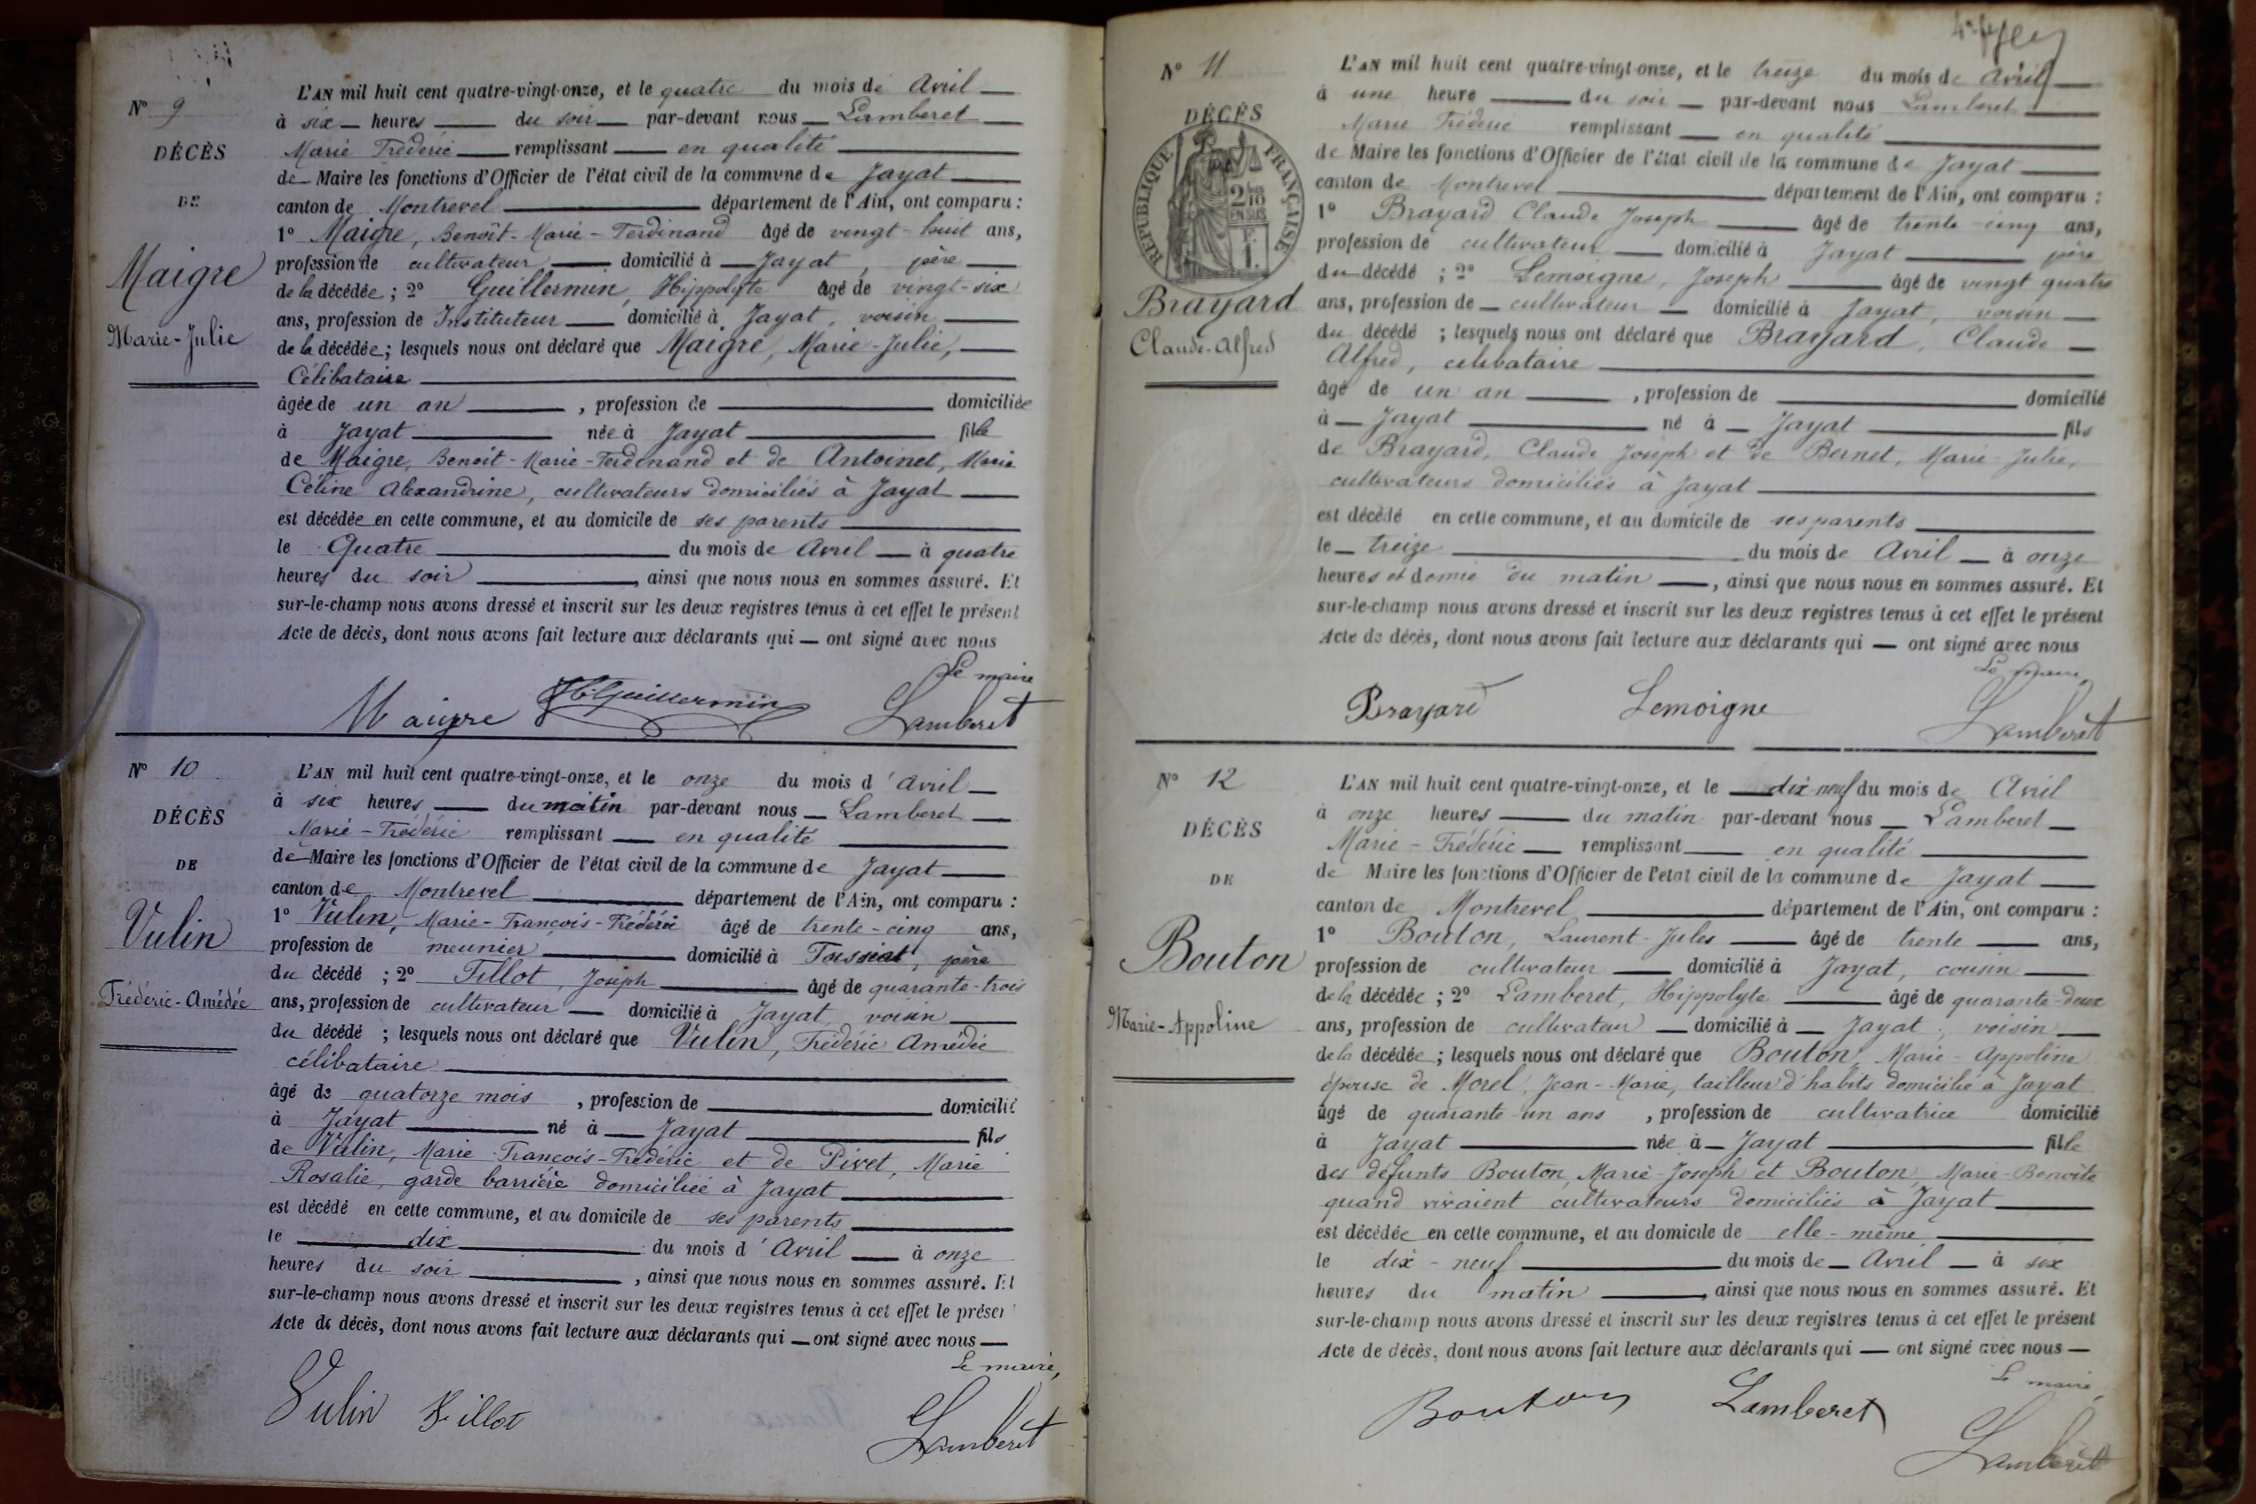 N° 9
DÉCÈS
DE
Maigre
Marie-Julie
L'AN mil huit cent quatre-vingt-onze, et le quatre du mois de Avril
à six heures du soir par-devant nous Lamberet
Marie Frédéric remplissant en qualité
de Maire les fonctions d'Officier de l'état civil de la commune de Jayat
canton de Montrevel département de l'Ain, ont comparu :
1° Maigre, Benoît-Marie-Ferdinand âgé de vingt-huit ans,
profession de cultivateur domicilié à Jayat, père
de la décédée ; 2° Guillermin, Hippolyte âgé de vingt-six
ans, profession de Instituteur domicilié à Jayat, voisin
de la décédée ; lesquels nous ont déclaré que Maigre, Marie-Julie,
Célibataire
âgée de un an , profession de domiciliée
à Jayat née à Jayat fille
de Maigre, Benoît-Marie-Ferdinand et de Antoinet, Marie
Céline Alexandrine, cultivateurs domiciliés à Jayat
est décédée en cette commune, et au domicile de ses parents
le Quatre du mois de Avril à quatre
heures du soir , ainsi que nous nous en sommes assuré. Et
sur-le-champ nous avons dressé et inscrit sur les deux registres tenus à cet effet le présent
Acte de décès, dont nous avons fait lecture aux déclarants qui ont signé avec nous
Le maire
Maigre H. Guillermin Lamberet
N° 10
DÉCÈS
DE
Vulin
Frédéric-Amédée
L'AN mil huit cent quatre-vingt-onze, et le onze du mois d'Avril
à six heures du matin par-devant nous Lamberet
Marie-Frédéric remplissant en qualité
de Maire les fonctions d'Officier de l'état civil de la commune de Jayat
canton de Montrevel département de l'Ain, ont comparu :
1° Vulin, Marie-François-Frédéric âgé de trente-cinq ans,
profession de meunier domicilié à Foissiat, père
du décédé ; 2° Fillot, Joseph âgé de quarante-trois
ans, profession de cultivateur domicilié à Jayat voisin
du décédé ; lesquels nous ont déclaré que Vulin, Frédéric Amédée
célibataire
âgé de quatorze mois , profession de domicilié
à Jayat né à Jayat fils
de Vulin, Marie François-Frédéric et de Pivet, Marie
Rosalie, garde barrière domiciliée à Jayat
est décédé en cette commune, et au domicile de ses parents
le dix du mois d'Avril à onze
heures du soir , ainsi que nous nous en sommes assuré. Et
sur-le-champ nous avons dressé et inscrit sur les deux registres tenus à cet effet le présen
Acte de décès, dont nous avons fait lecture aux déclarants qui ont signé avec nous
Le maire,
Vulin Fillot Lamberet
N° 11
DÉCÈS
RÉPUBLIQUE FRANÇAISE
Brayard
Claude-Alfred
L'AN mil huit cent quatre-vingt-onze, et le treize du mois de Avril
à une heure du soir par-devant nous Lamberet
Marie Frédéric remplissant en qualité
de Maire les fonctions d'Officier de l'état civil de la commune de Jayat
canton de Montrevel département de l'Ain, ont comparu :
1° Brayard Claude Joseph âgé de trente-cinq ans,
profession de cultivateur domicilié à Jayat père
du décédé ; 2° Lemoigne, Joseph âgé de vingt quatre
ans, profession de cultivateur domicilié à Jayat, voisin
du décédé ; lesquels nous ont déclaré que Brayard, Claude
Alfred, célibataire
âgé de un an , profession de domicilié
à Jayat né à Jayat fils
de Brayard, Claude Joseph et de Bernet, Marie-Julie,
cultivateurs domiciliés à Jayat
est décédé en cette commune, et au domicile de ses parents
le treize du mois de Avril à onze
heures et demie du matin , ainsi que nous nous en sommes assuré. Et
sur-le-champ nous avons dressé et inscrit sur les deux registres tenus à cet effet le présent
Acte de décès, dont nous avons fait lecture aux déclarants qui ont signé avec nous
Le maire,
Brayard Lemoigne Lamberet
N° 12
DÉCÈS
DE
Bouton
Marie-Appoline
L'AN mil huit cent quatre-vingt-onze, et le dix neuf du mois de Avril
à onze heures du matin par-devant nous Lamberet
Marie-Frédéric remplissant en qualité
de Maire les fonctions d'Officier de l'etat civil de la commune de Jayat
canton de Montrevel département de l'Ain, ont comparu :
1° Bouton, Laurent-Jules âgé de trente ans,
profession de cultivateur domicilié à Jayat, cousin
de la décédée ; 2° Lamberet, Hippolyte âgé de quarante-deux
ans, profession de cultivateur domicilié à Jayat, voisin
de la décédée ; lesquels nous ont déclaré que Bouton, Marie-Appoline
épouse de Morel, Jean-Marie, tailleur d'habits domicilié à Jayat
âgé de quarante-un ans , profession de cultivatrice domicilié
à Jayat née à Jayat fille
des défunts Bouton, Marie-Joseph et Bouton, Marie-Benoîte
quand vivaient cultivateurs domiciliés à Jayat
est décédée en cette commune, et au domicile de elle-même
le dix-neuf du mois de Avril à six
heures du matin , ainsi que nous nous en sommes assuré. Et
sur-le-champ nous avons dressé et inscrit sur les deux registres tenus à cet effet le présent
Acte de décès, dont nous avons fait lecture aux déclarants qui ont signé avec nous
Le maire,
Bouton Lamberet Lamberet